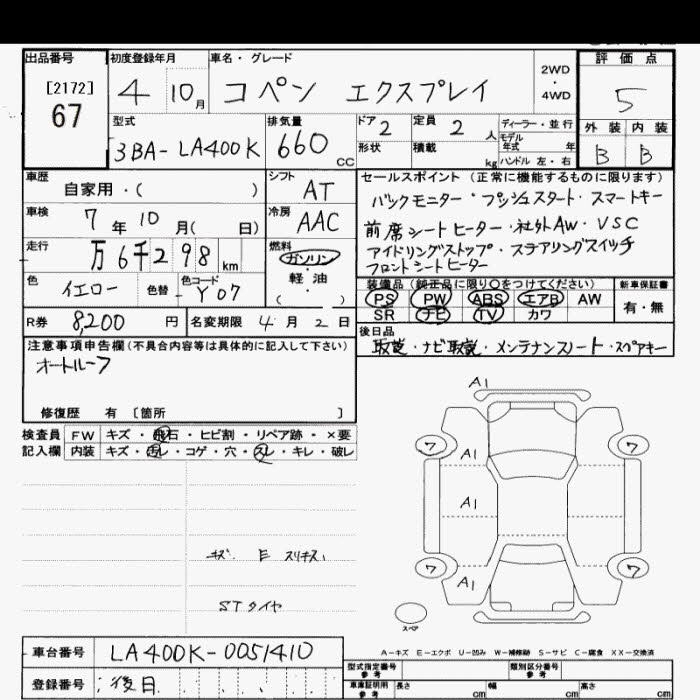 出品番号 初度登録年月 車名・グレード 評価点
[2172]
67
4 10月 コペン エクスプレイ 2WD・4WD 5
型式 排気量 ドア 定員 ディーラー・並行 外装 内装
3BA-LA400K 660 CC 2 2人 モデル年式 年 B B
形状 積載 kg ハンドル 左・右
車歴 自家用・( ) シフト AT
セールスポイント (正常に機能するものに限ります)
バックモニター・プッシュスタート・スマートキー
車検 7年10月( 日) 冷房 AAC
前席シートヒーター・社外AW・VSC
走行 万6千298km 燃料 ガソリン・軽油・( )
アイドリングストップ・ステアリングスイッチ
フロントシートヒーター
色 イエロー 色替 色コード Y07
装備品 (純正品に限り○をつけてください) 新車保証書
PS PW ABS エアB AW 有・無
SR ナビ TV カワ
R券 8,200円 名変期限 4月2日
後日品
取説・ナビ取説・メンテナンスノート・スペアキー
注意事項申告欄(不具合内容等は具体的に記入して下さい)
オートルーフ
修復歴 有 [箇所 ]
検査員 FW キズ・飛石・ヒビ割・リペア跡・×要
記入欄 内装 キズ・汚レ・コゲ・穴・スレ・キレ・破レ
A1
7 7
A1
A1
キズ E スリキズ
7 7
A1
STタイヤ
スペア
A-キズ E-エクボ U-凹み W-補修跡 S-サビ C-腐食 XX-交換済
車台番号 LA400K-0051410
型式指定番号 参考 類別区分番号 参考
登録番号 後日
車庫証明用 参考 長さ cm 幅 cm 高さ cm